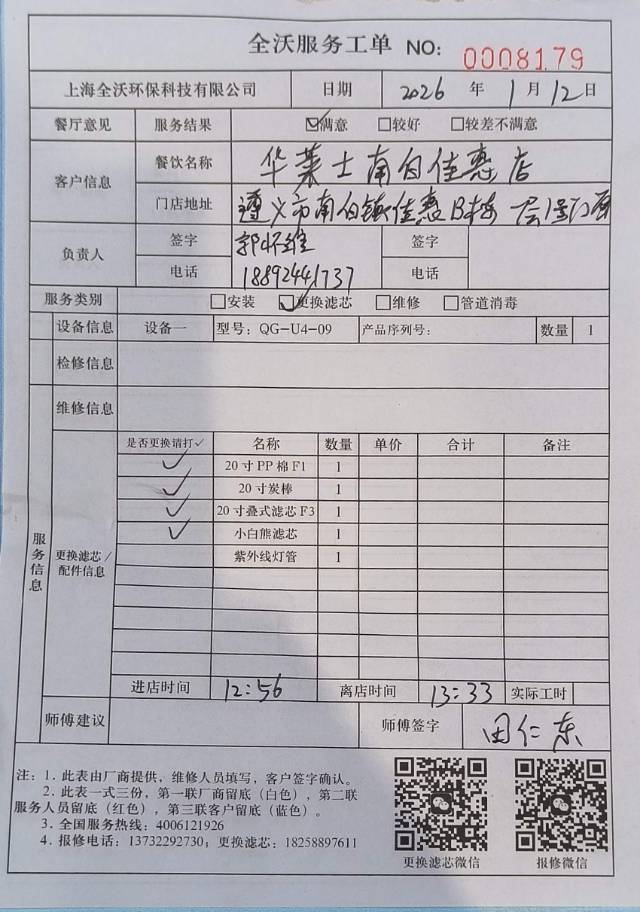 全沃服务工单 NO: 0008179
上海全沃环保科技有限公司 日期 2026 年 1 月 12 日
餐厅意见 服务结果 ☑满意 □较好 □较差不满意
客户信息 餐饮名称 华莱士南白佳惠店
门店地址 遵义市南白镇佳惠B栋一层1号门面
负责人 签字 郭怀维 签字
电话 18892441737 电话
服务类别 □安装 ☑更换滤芯 □维修 □管道消毒
设备信息 设备一 型号: QG-U4-09 产品序列号: 数量 1
检修信息
维修信息
服务信息
更换滤芯/配件信息
是否更换请打✓ 名称 数量 单价 合计 备注
✓ 20寸PP棉F1 1
✓ 20寸炭棒 1
✓ 20寸叠式滤芯F3 1
✓ 小白熊滤芯 1
紫外线灯管 1
进店时间 12:56 离店时间 13:33 实际工时
师傅建议 师傅签字 田仁东
注: 1. 此表由厂商提供，维修人员填写，客户签字确认。
2. 此表一式三份，第一联厂商留底（白色），第二联
服务人员留底（红色），第三联客户留底（蓝色）。
3. 全国服务热线: 4006121926
4. 报修电话: 13732292730; 更换滤芯: 18258897611
更换滤芯微信 报修微信